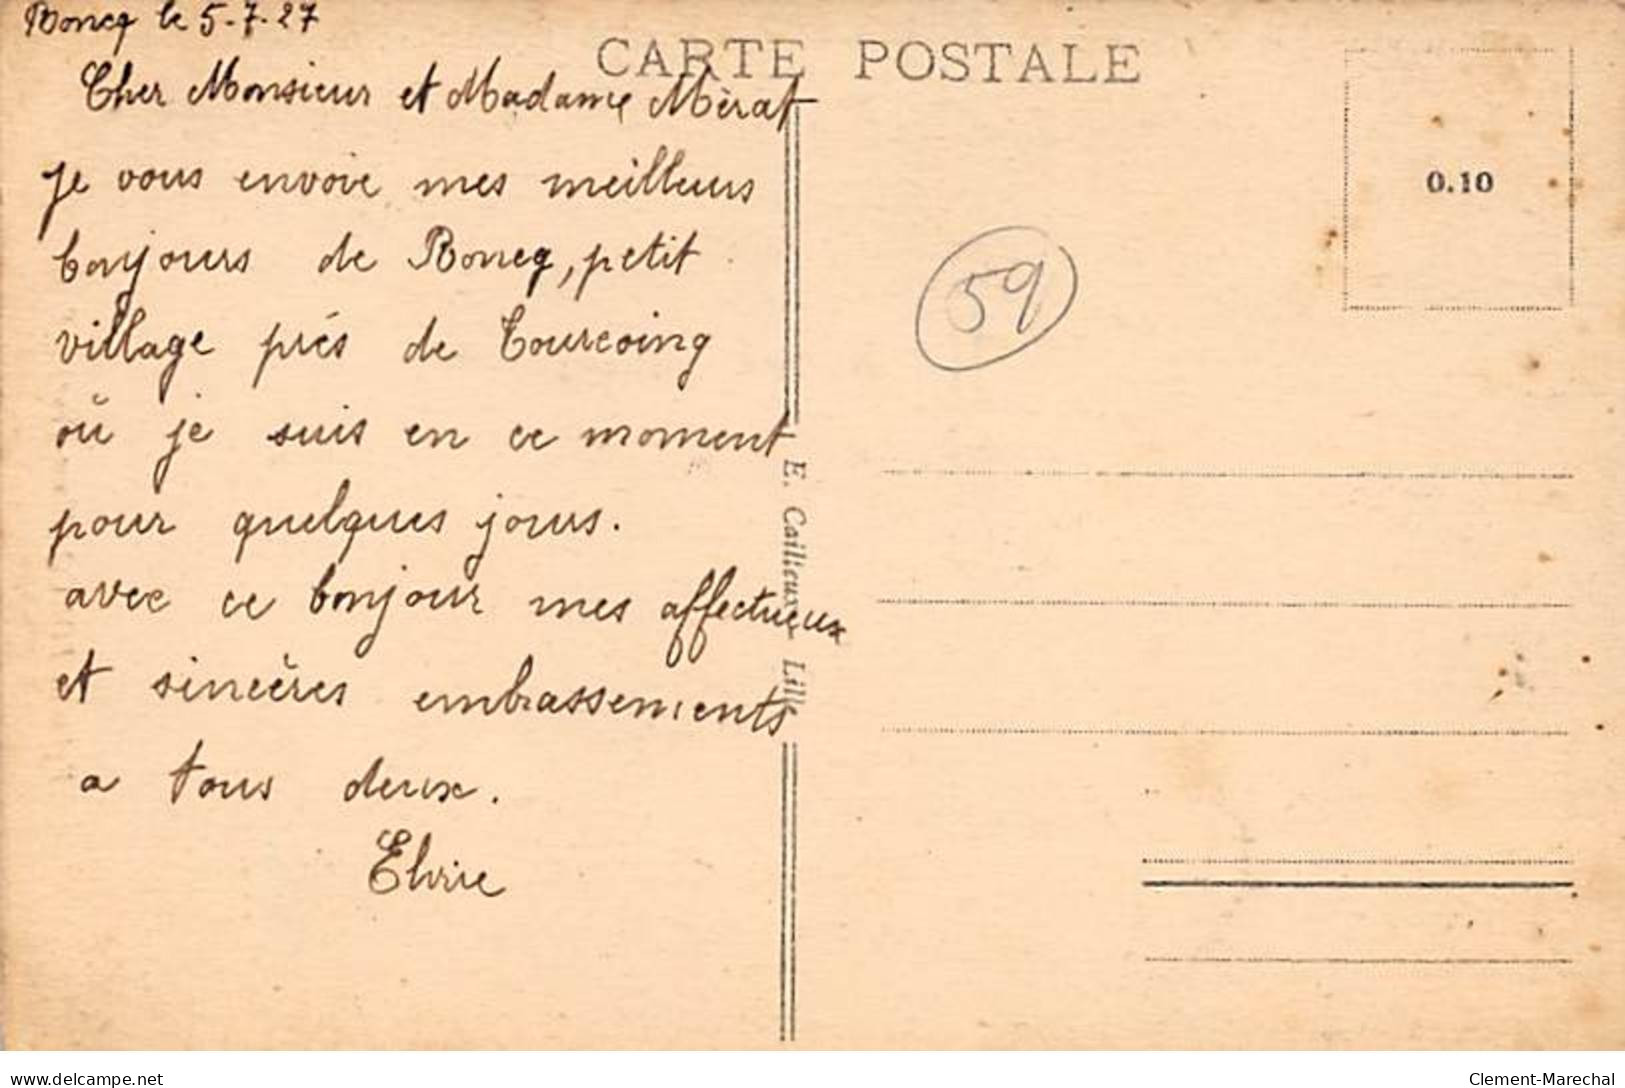 Roncq le 5-7-27
CARTE POSTALE
Cher Monsieur et Madame Mèrat
je vous envoie mes meilleurs
bonjours de Roncq, petit
village prés de Tourcoing
où je suis en ce moment
pour quelques jours.
avec ce bonjour mes affectueux
et sincères embrassements
a tous deux.
Elvire
0.10
59
E. Cailleux - Lille
delcampe.net
Clement-Marechal